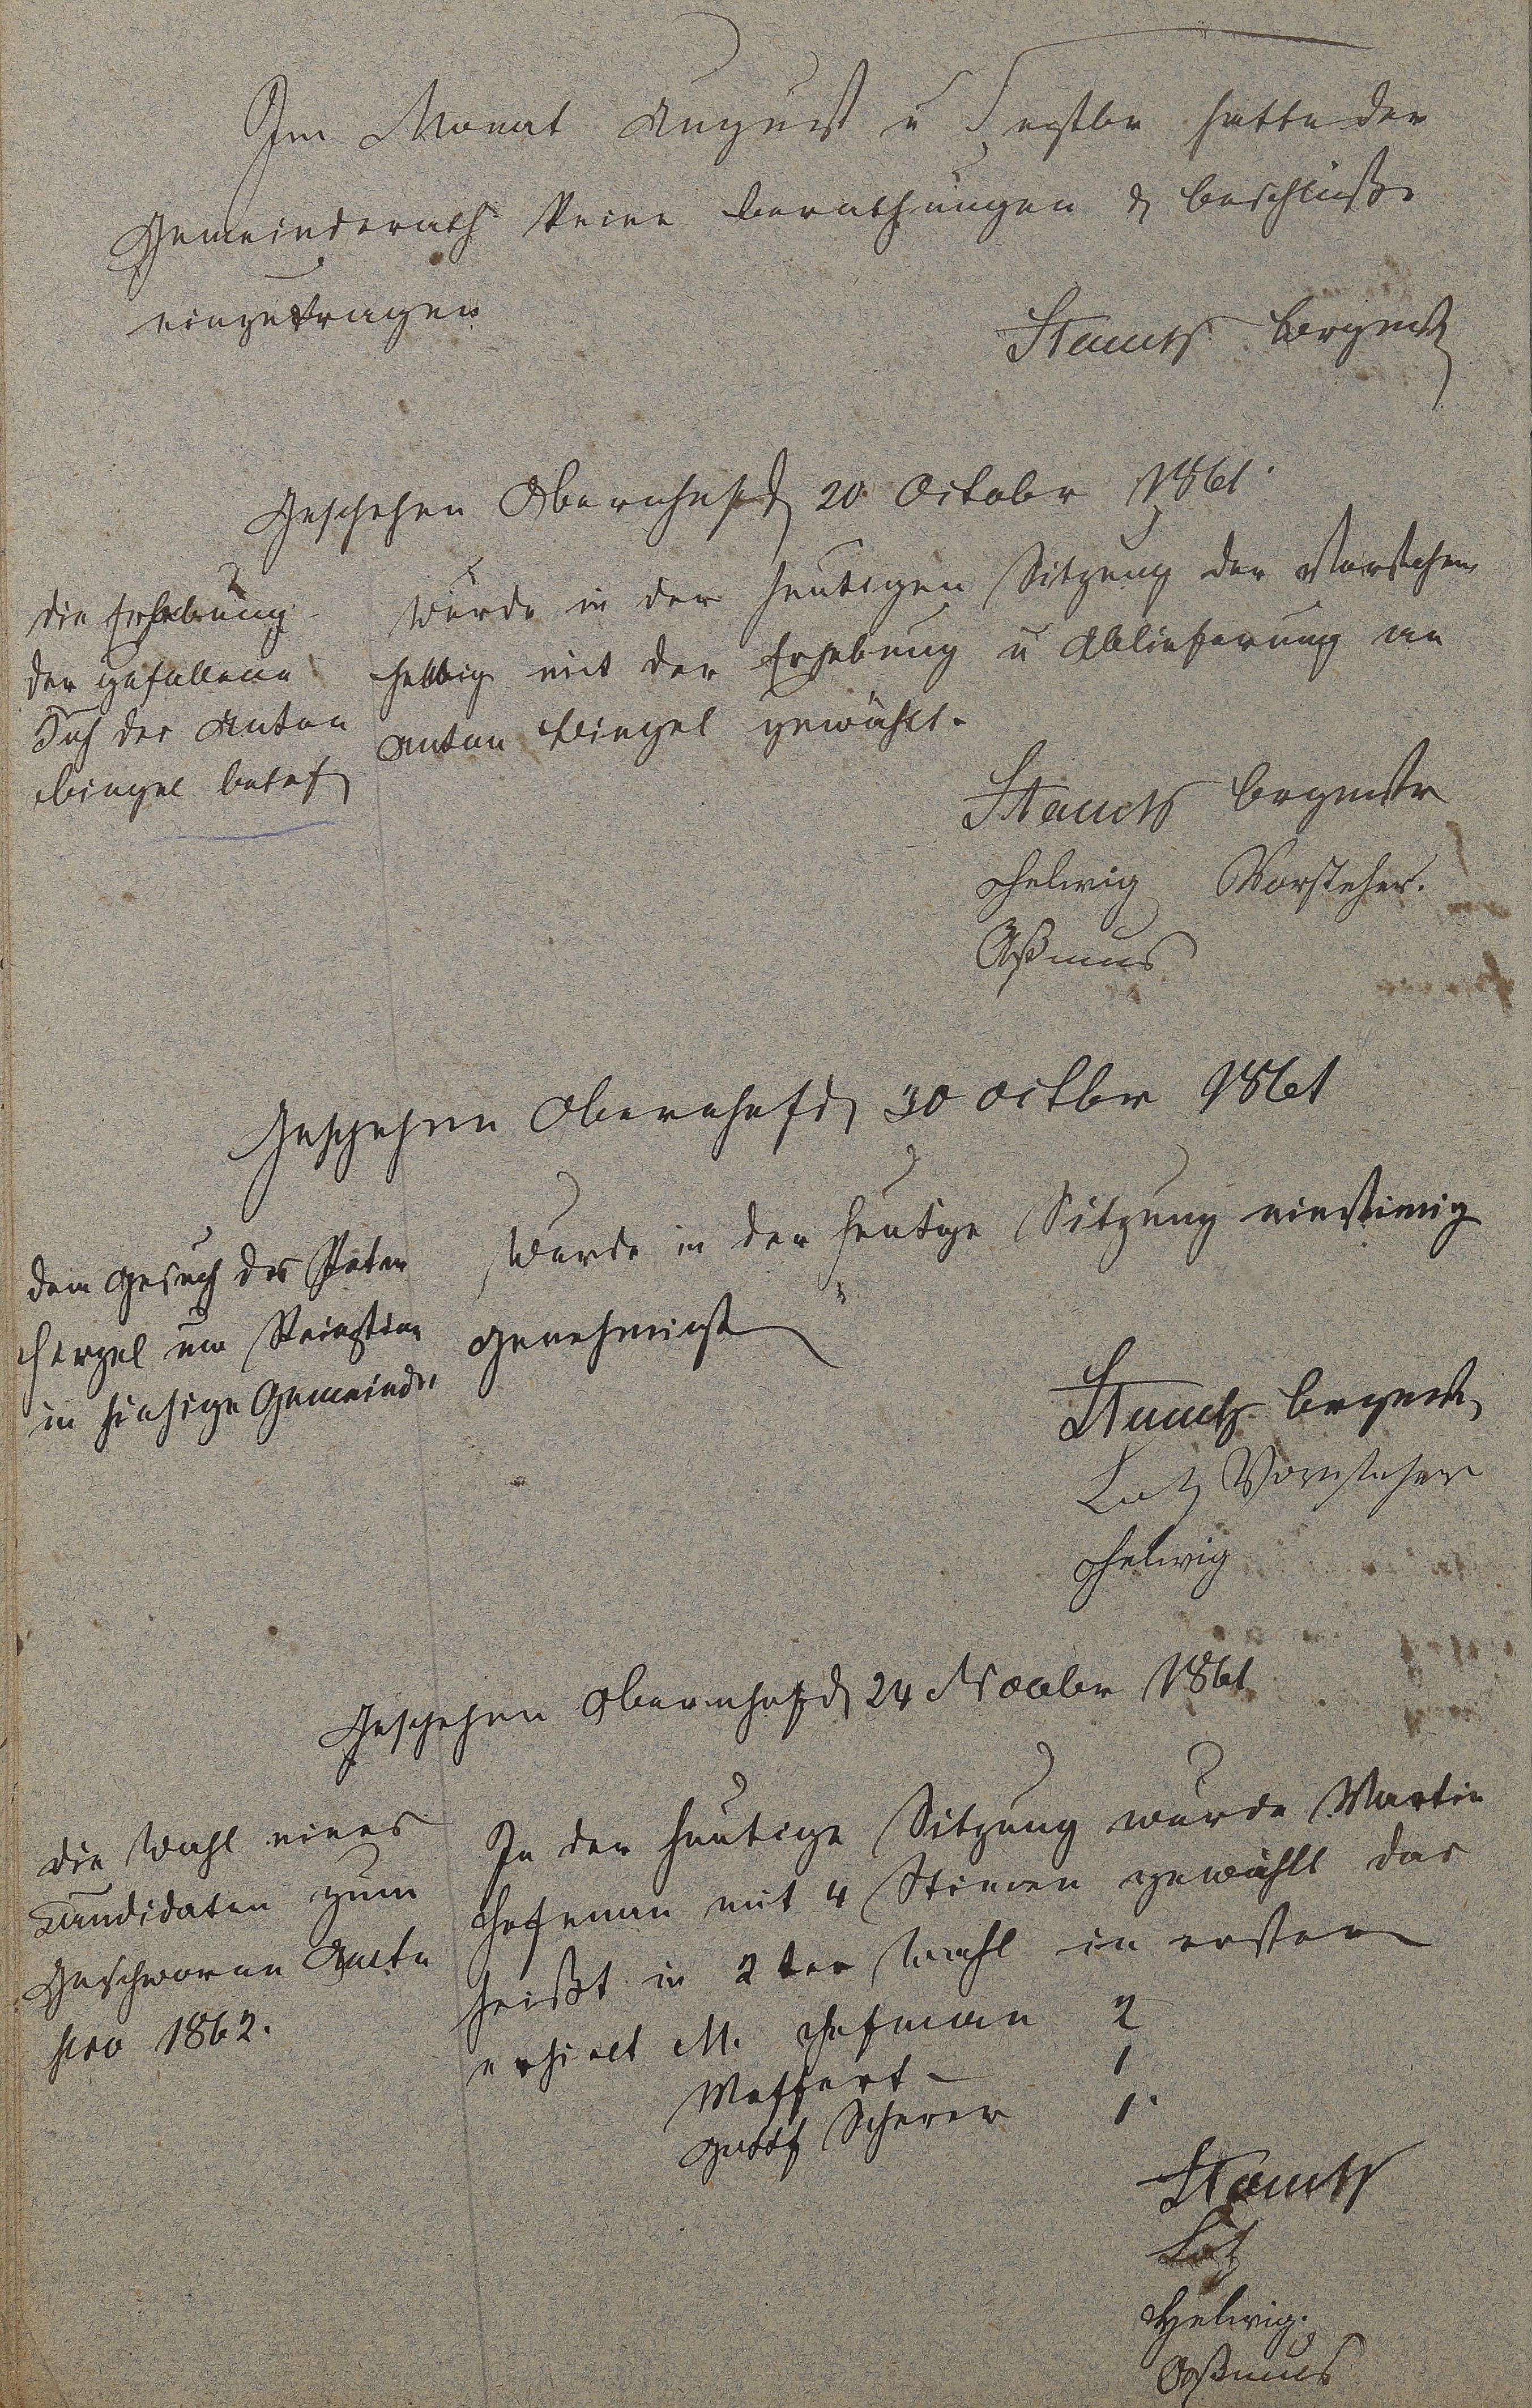 Im Monat August u Septbr hatte der
Gemeinderath keine Berathungen & Beschlüße
einzutragen
Stauch Brgmstr
Geschehen Obernhof d 20 October 1861
Die Erhebung
der gefallene
der Anton
Bingel betrf
Wurde in der heutigen Sitzung der Vorsteher
Helwig mit der Erhebung u Ablieferung an
Anton Bingel gewählt.
Stauch Brgmstr
Helwig Vorsteher.
Aßmus
Geschehen Obernhof d 30 Octbr 1861
Dem Gesuch des Peter
um
in hiesige Gemeinde
Wurde in der heutige Sitzung einstimig
genehmigt
Stauch Brgmstr
Lotz Vorsteher
Helwig
Geschehen Obernhof d 24 Novbr 1861
Die Wahl eines
Candidaten zum
Geschworne Amte
pro 1862.
In der heutige Sitzung wurde Martin
Hofman mit 4 Stimen gewählt das
heißt in 2ter Wahl in erster
erhielt M. Hofman 2
Meffert - 1
Gottf Scherer 1.
Stauch
Lotz
Helwig.
Aßmus